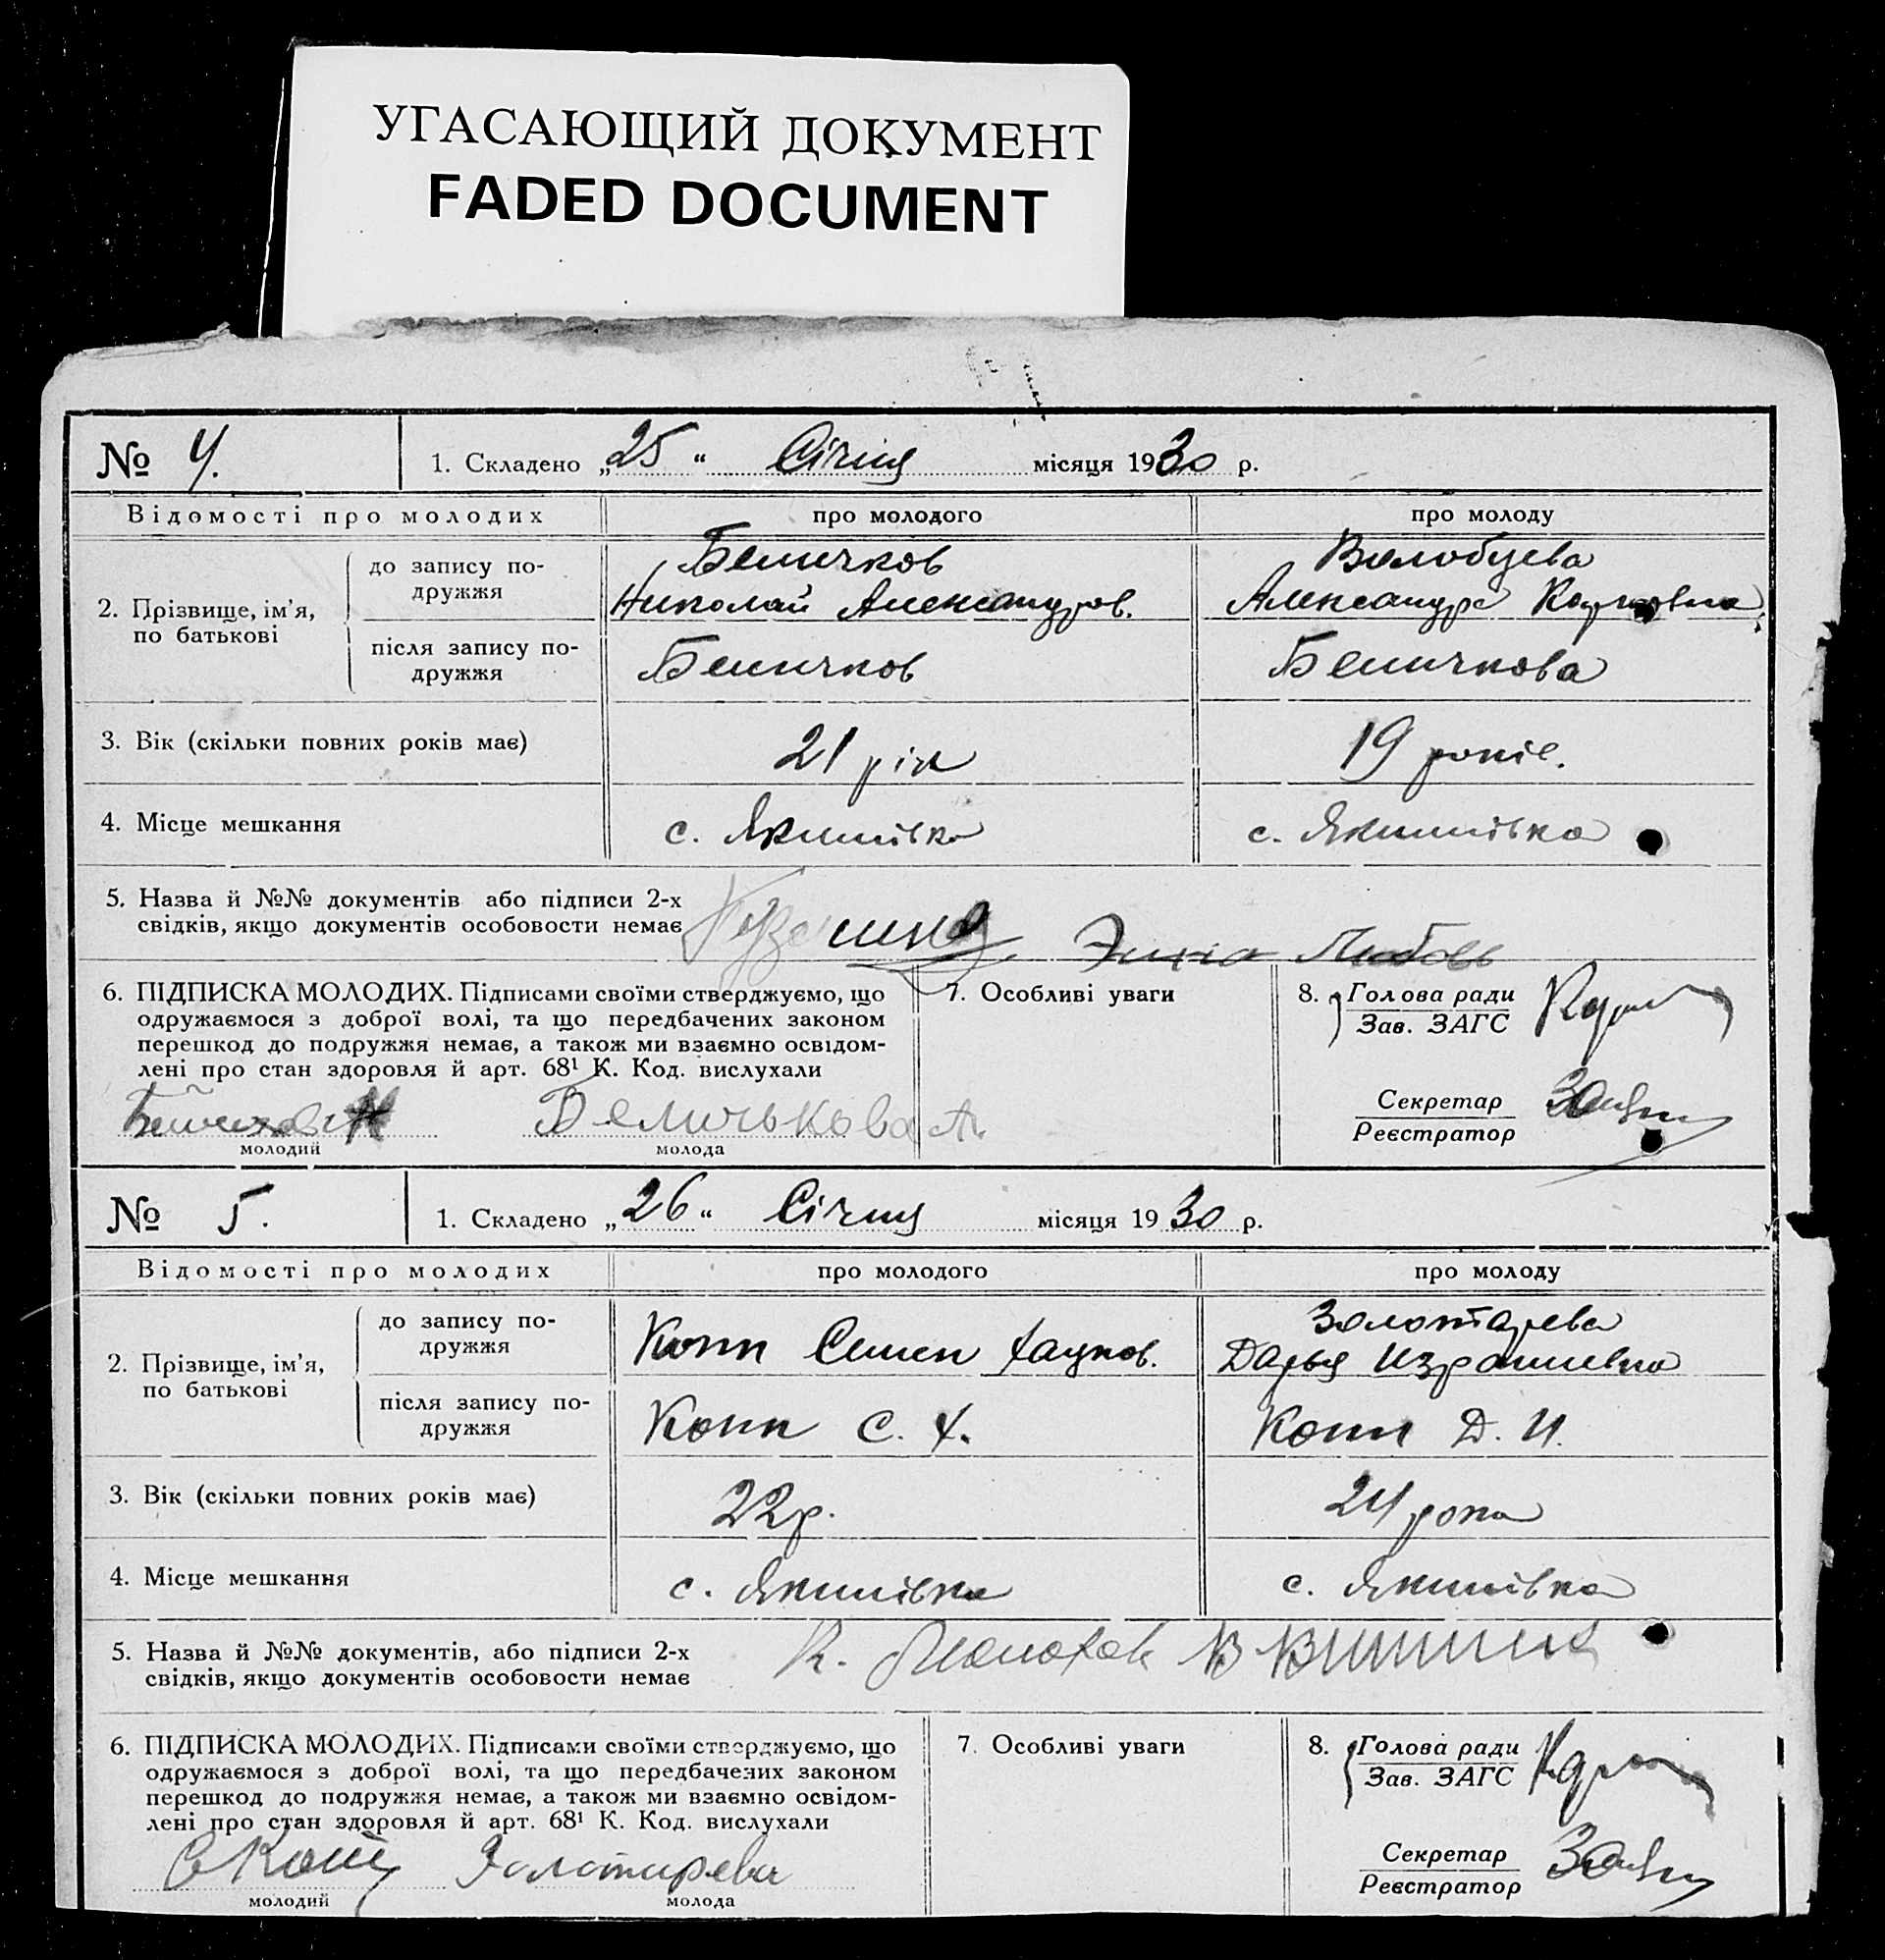 УГАСАЮЩИЙ ДОКУМЕНТ
FADED DOCUMENT
№ 4.
1. Складено „25“ Січня місяця 1930 р.
Відомості про молодих
про молодого
про молоду
2. Прізвище, ім’я,
по батькові
до запису по-
дружжя
Беличков
Николай Александров.
Волобуева
Александра
після запису по-
дружжя
Беличков
Беличкова
3. Вік (скільки повних років має)
21 рік
19 років.
4. Місце мешкання
с. Якимівка
с. Якимівка
5. Назва й №№ документів або підписи 2-х
свідків, якщо документів особовости немає
Любовь
6. ПІДПИСКА МОЛОДИХ. Підписами своїми стверджуємо, що
одружаємося з доброї волі, та що передбачених законом
перешкод до подружжя немає, а також ми взаємно освідом-
лені про стан здоровля й арт. 68¹ К. Код. вислухали
Беличькова А.
молодий
молода
7. Особливі уваги
8. Голова ради
Зав. ЗАГС
Секретар
Реєстратор
№ 5.
1. Складено „26“ Січня місяця 1930 р.
Відомості про молодих
про молодого
про молоду
2. Прізвище, ім’я,
по батькові
до запису по-
дружжя
Копп Семен
Золотарева
Дарья Израилевна
після запису по-
дружжя
Копп С. Х.
Копп Д. И.
3. Вік (скільки повних років має)
22 р.
24 рока
4. Місце мешкання
с. Якимівка
с. Якимівка
5. Назва й №№ документів, або підписи 2-х
свідків, якщо документів особовости немає
6. ПІДПИСКА МОЛОДИХ. Підписами своїми стверджуємо, що
одружаємося з доброї волі, та що передбачених законом
перешкод до подружжя немає, а також ми взаємно освідом-
лені про стан здоровля й арт. 68¹ К. Код. вислухали
С Копп Золотарева
молодий
молода
7. Особливі уваги
8. Голова ради
Зав. ЗАГС
Секретар
Реєстратор